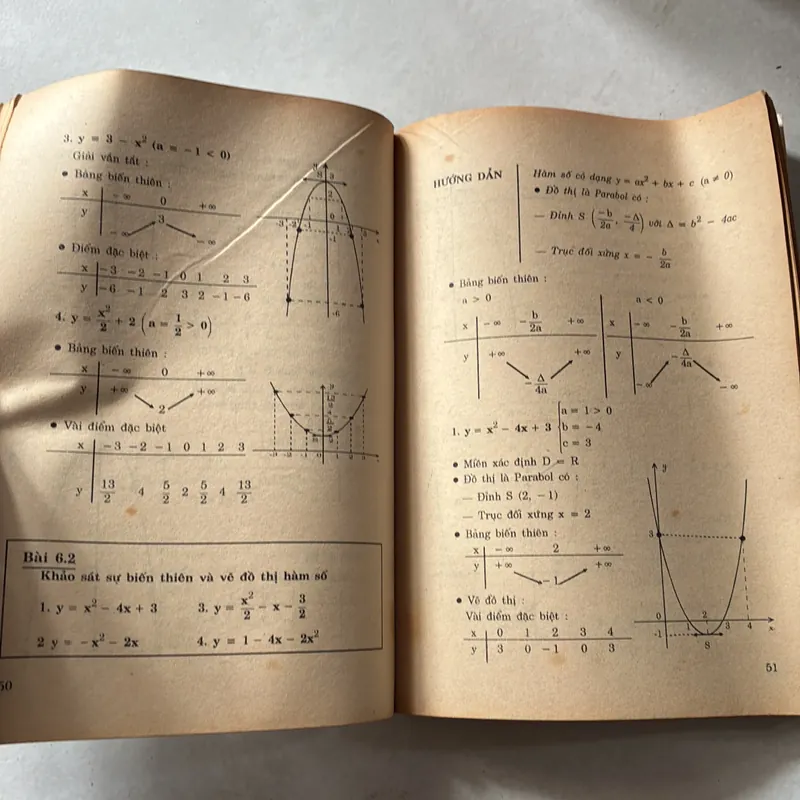 3. y = 3 − x² (a = −1 < 0)
Giải vắn tắt :
• Bảng biến thiên :
x −∞ 0 +∞
y 3
−∞ −∞
• Điểm đặc biệt :
x −3 −2 −1 0 1 2 3
y −6 −1 2 3 2 −1 −6
4. y = x²/2 + 2 (a = 1/2 > 0)
• Bảng biến thiên :
x −∞ 0 +∞
y +∞ +∞
2
• Vài điểm đặc biệt
x −3 −2 −1 0 1 2 3
y 13/2 4 5/2 2 5/2 4 13/2
Bài 6.2
Khảo sát sự biến thiên và vẽ đồ thị hàm số
1. y = x² − 4x + 3 3. y = x²/2 − x − 3/2
2 y = −x² − 2x 4. y = 1 − 4x − 2x²
50
HƯỚNG DẪN
Hàm số có dạng y = ax² + bx + c (a ≠ 0)
• Đồ thị là Parabol có :
— Đỉnh S (−b/2a, −Δ/4) với Δ = b² − 4ac
— Trục đối xứng x = − b/2a
• Bảng biến thiên :
a > 0 a < 0
x −∞ −b/2a +∞ x −∞ −b/2a +∞
y +∞ +∞ y −Δ/4a
−Δ/4a −∞ −∞
1. y = x² − 4x + 3
a = 1 > 0
b = −4
c = 3
• Miền xác định D = R
• Đồ thị là Parabol có :
— Đỉnh S (2, −1)
— Trục đối xứng x = 2
• Bảng biến thiên :
x −∞ 2 +∞
y +∞ −1 +∞
• Vẽ đồ thị :
Vài điểm đặc biệt :
x 0 1 2 3 4
y 3 0 −1 0 3
y
3
0 1 2 3 4 x
-1
S
51